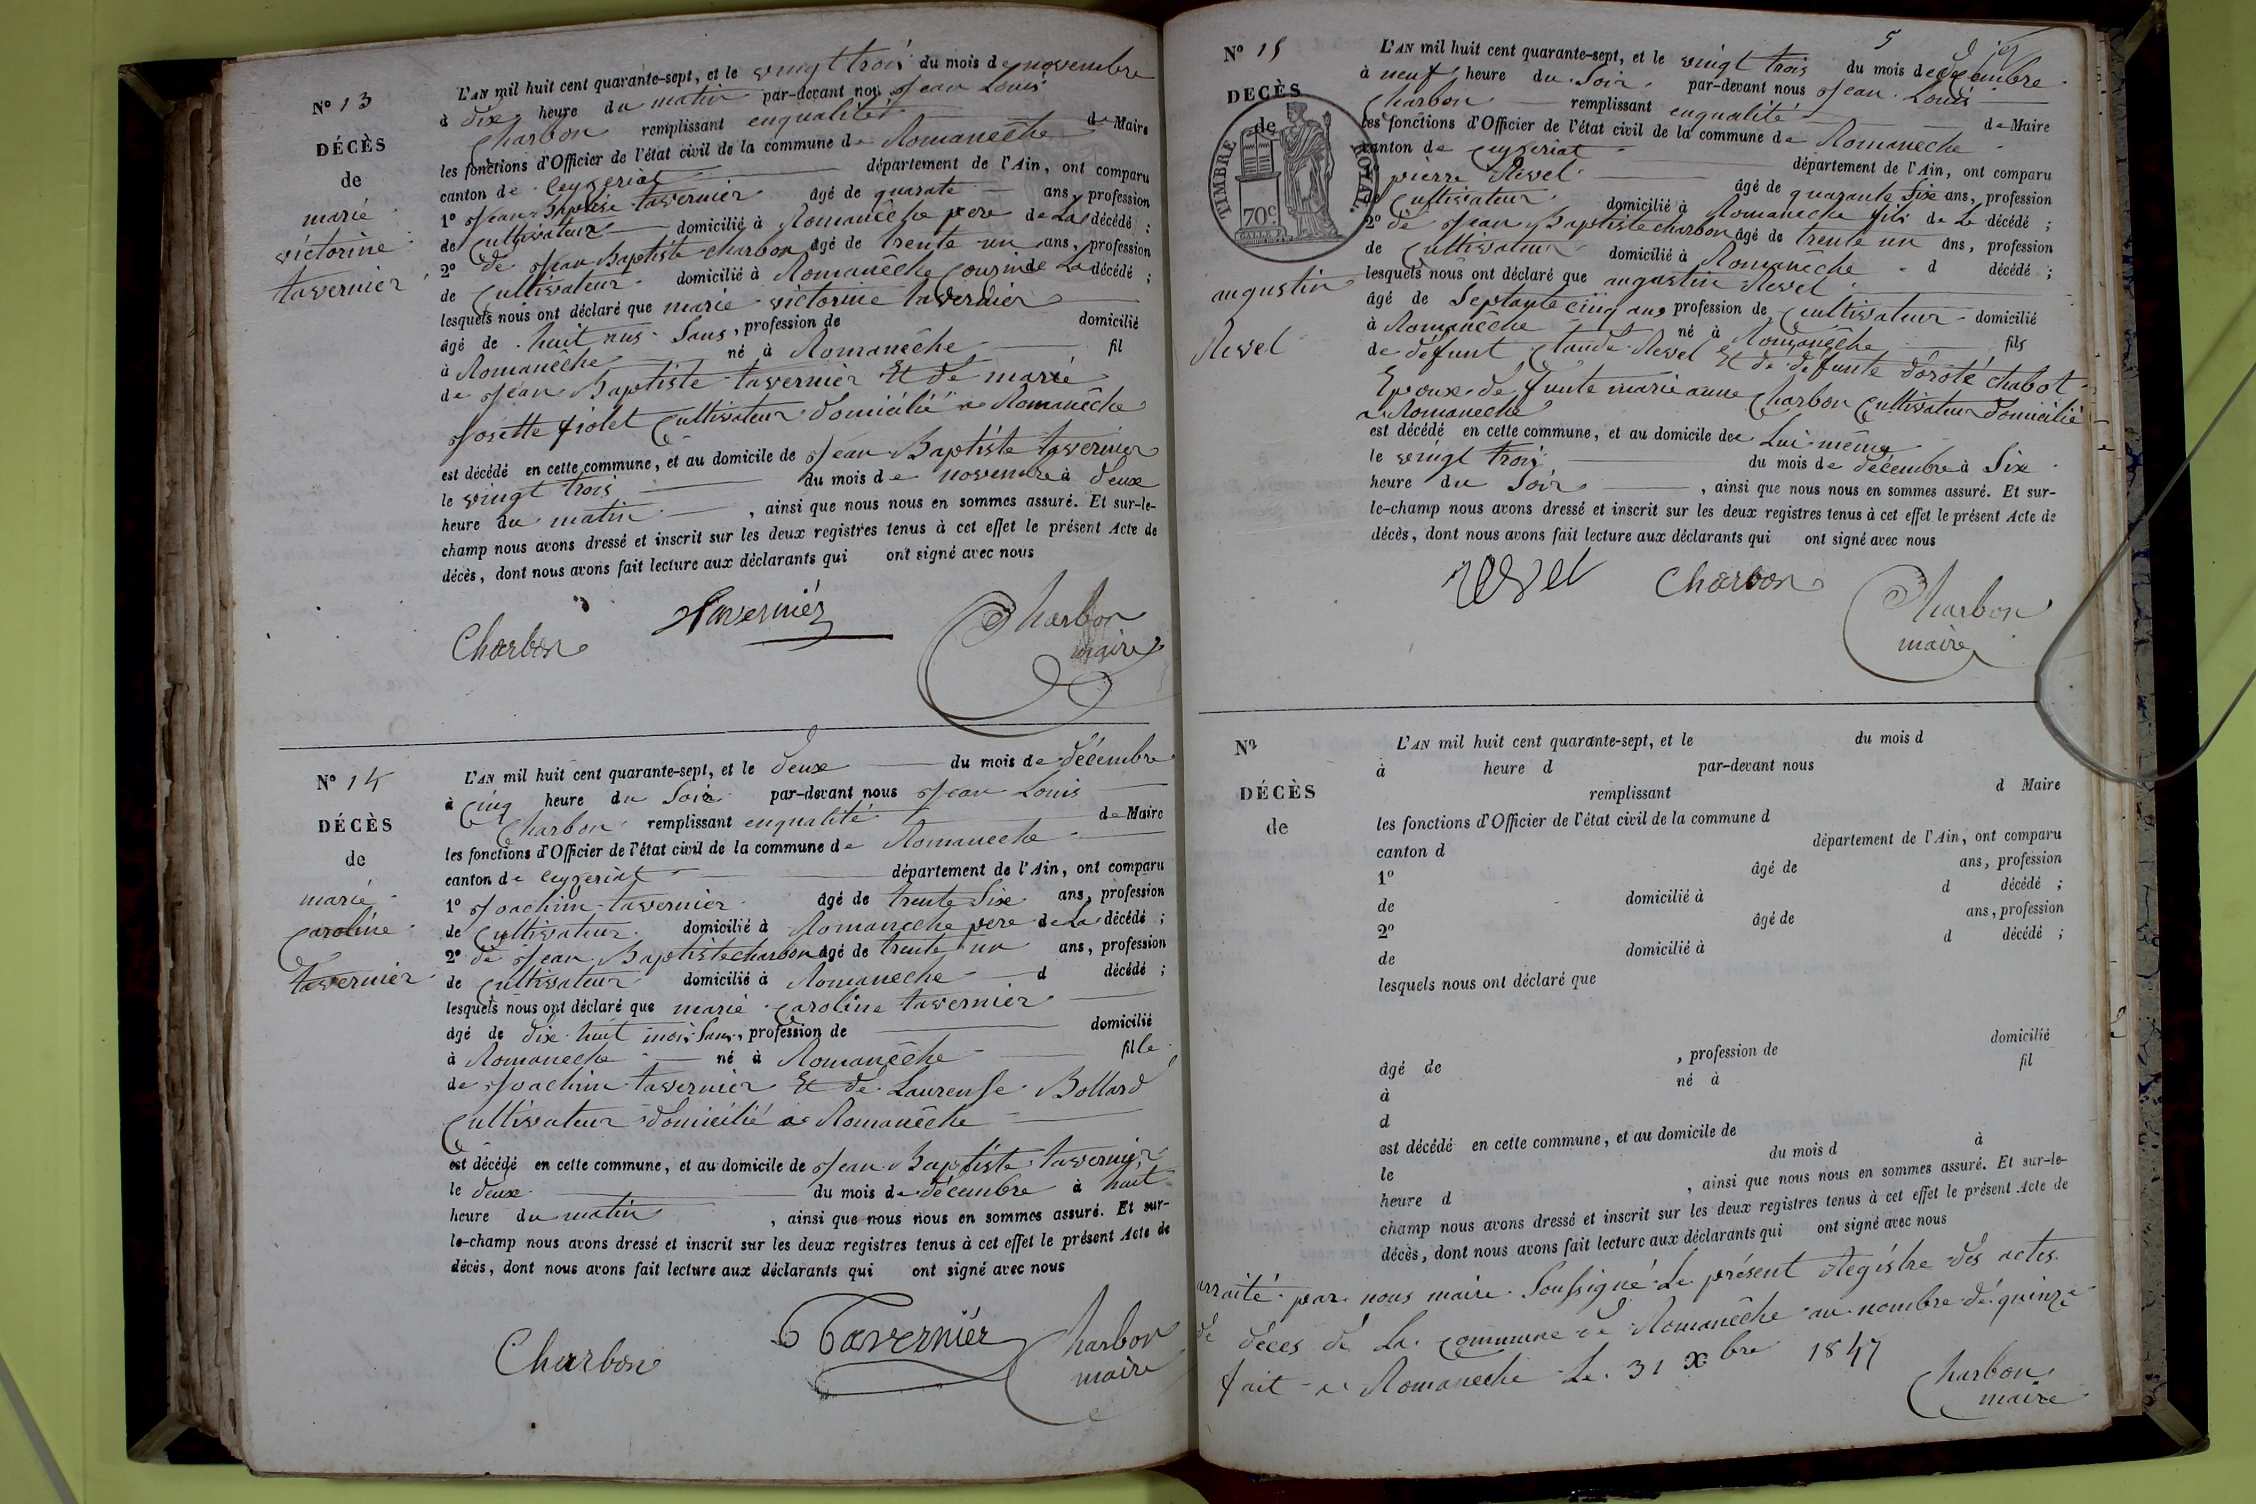 N° 13
DÉCÈS
de
marie
victorine
tavernier
L'AN mil huit cent quarante-sept, et le vingt trois du mois de novembre
à dix heure du matin par-devant nous Jean Louis
Charbon remplissant enqualité de Maire
les fonctions d'Officier de l'état civil de la commune de Romanêche
canton de Ceyzeriat département de l'Ain, ont comparu
1° Jean Baptiste tavernier âgé de quarate ans, profession
de Cultivateur domicilié à Romanêche pere de La décédé ;
2° de Jean Baptiste charbon âgé de trente un ans, profession
de Cultivateur domicilié à Romanêche Cousin de La décédé ;
lesquels nous ont déclaré que marie victorine tavernier
âgé de huit ans Sans, profession de domicilié
à Romanêche né à Romanêche fil
de Jean Baptiste tavernier Et de marie
Josette fiolet Cultivateur domicilié a Romanêche
est décédé en cette commune, et au domicile de Jean Baptiste tavernier
le vingt trois du mois de novembre à deux
heure du matin, ainsi que nous nous en sommes assuré. Et sur-le-
champ nous avons dressé et inscrit sur les deux registres tenus à cet effet le présent Acte de
décès, dont nous avons fait lecture aux déclarants qui ont signé avec nous
Charbon Tavernier Charbon
maire
N° 14
DÉCÈS
de
marie
Caroline
tavernier
L'AN mil huit cent quarante-sept, et le deux du mois de décembre
à Cinq heure du Soir par-devant nous Jean Louis
Charbon remplissant enqualité de Maire
les fonctions d'Officier de l'état civil de la commune de Romaneche
canton de Ceyzeriat département de l'Ain, ont comparu
1° Joachim tavernier âgé de trente Six ans, profession
de Cultivateur domicilié à Romaneche pere de La décédé ;
2° de Jean Baptiste charbon âgé de trente un ans, profession
de Cultivateur domicilié à Romaneche d décédé ;
lesquels nous ont déclaré que marie Caroline tavernier
âgé de dix huit mois Sans, profession de domicilié
à Romaneche né à Romanêche fille
de Joachim tavernier Et de Laurense Bollard
Cultivateur domicilié a Romanêche
est décédé en cette commune, et au domicile de Jean Baptiste tavernier
le deux du mois de décembre à huit
heure du matin, ainsi que nous nous en sommes assuré. Et sur-
le-champ nous avons dressé et inscrit sur les deux registres tenus à cet effet le présent Acte de
décès, dont nous avons fait lecture aux déclarants qui ont signé avec nous
Charbon Tavernier Charbon
maire
5
N° 15
DECÈS
de
TIMBRE ROYAL.
70c
augustin
Revel
L'AN mil huit cent quarante-sept, et le vingt trois du mois de décembre
à neuf heure du Soir par-devant nous Jean Louis
Charbon remplissant enqualité de Maire
les fonctions d'Officier de l'état civil de la commune de Romanêche
canton de Ceyzeriat département de l'Ain, ont comparu
pierre Revel âgé de quarante Six ans, profession
de Cultivateur domicilié à Romaneche fils de Le décédé ;
2° de Jean Baptiste charbon âgé de trente un ans, profession
de Cultivateur domicilié à Romanêche d décédé ;
lesquels nous ont déclaré que augustin Revel
âgé de Septante cinq ans profession de Cultivateur domicilié
à Romanêche né à Romanêche fils
de défunt Claude Revel Et de défunte doroté chabot
Epoux de funte marie anne Charbon Cultivateur domicilié
a Romaneche
est décédé en cette commune, et au domicile de Lui même
le vingt trois du mois de décembre à Six
heure du Soir, ainsi que nous nous en sommes assuré. Et sur-
le-champ nous avons dressé et inscrit sur les deux registres tenus à cet effet le présent Acte de
décès, dont nous avons fait lecture aux déclarants qui ont signé avec nous
revel Charbon Charbon
maire
N°
DÉCÈS
de
L'AN mil huit cent quarante-sept, et le du mois d
à heure d par-devant nous
remplissant d Maire
les fonctions d'Officier de l'état civil de la commune d
canton d département de l'Ain, ont comparu
1° âgé de ans, profession
de domicilié à d décédé ;
2° âgé de ans, profession
de domicilié à d décédé ;
lesquels nous ont déclaré que
âgé de , profession de domicilié
à né à fil
d
est décédé en cette commune, et au domicile de
le du mois d à
heure d , ainsi que nous nous en sommes assuré. Et sur-le-
champ nous avons dressé et inscrit sur les deux registres tenus à cet effet le présent Acte de
décès, dont nous avons fait lecture aux déclarants qui ont signé avec nous
arraité par nous maire Soussigné Le présent Régistre des actes
de déces de La Commune de Romanêche au nombre de quinze
fait a Romaneche Le 31 xbre 1847
Charbon
maire